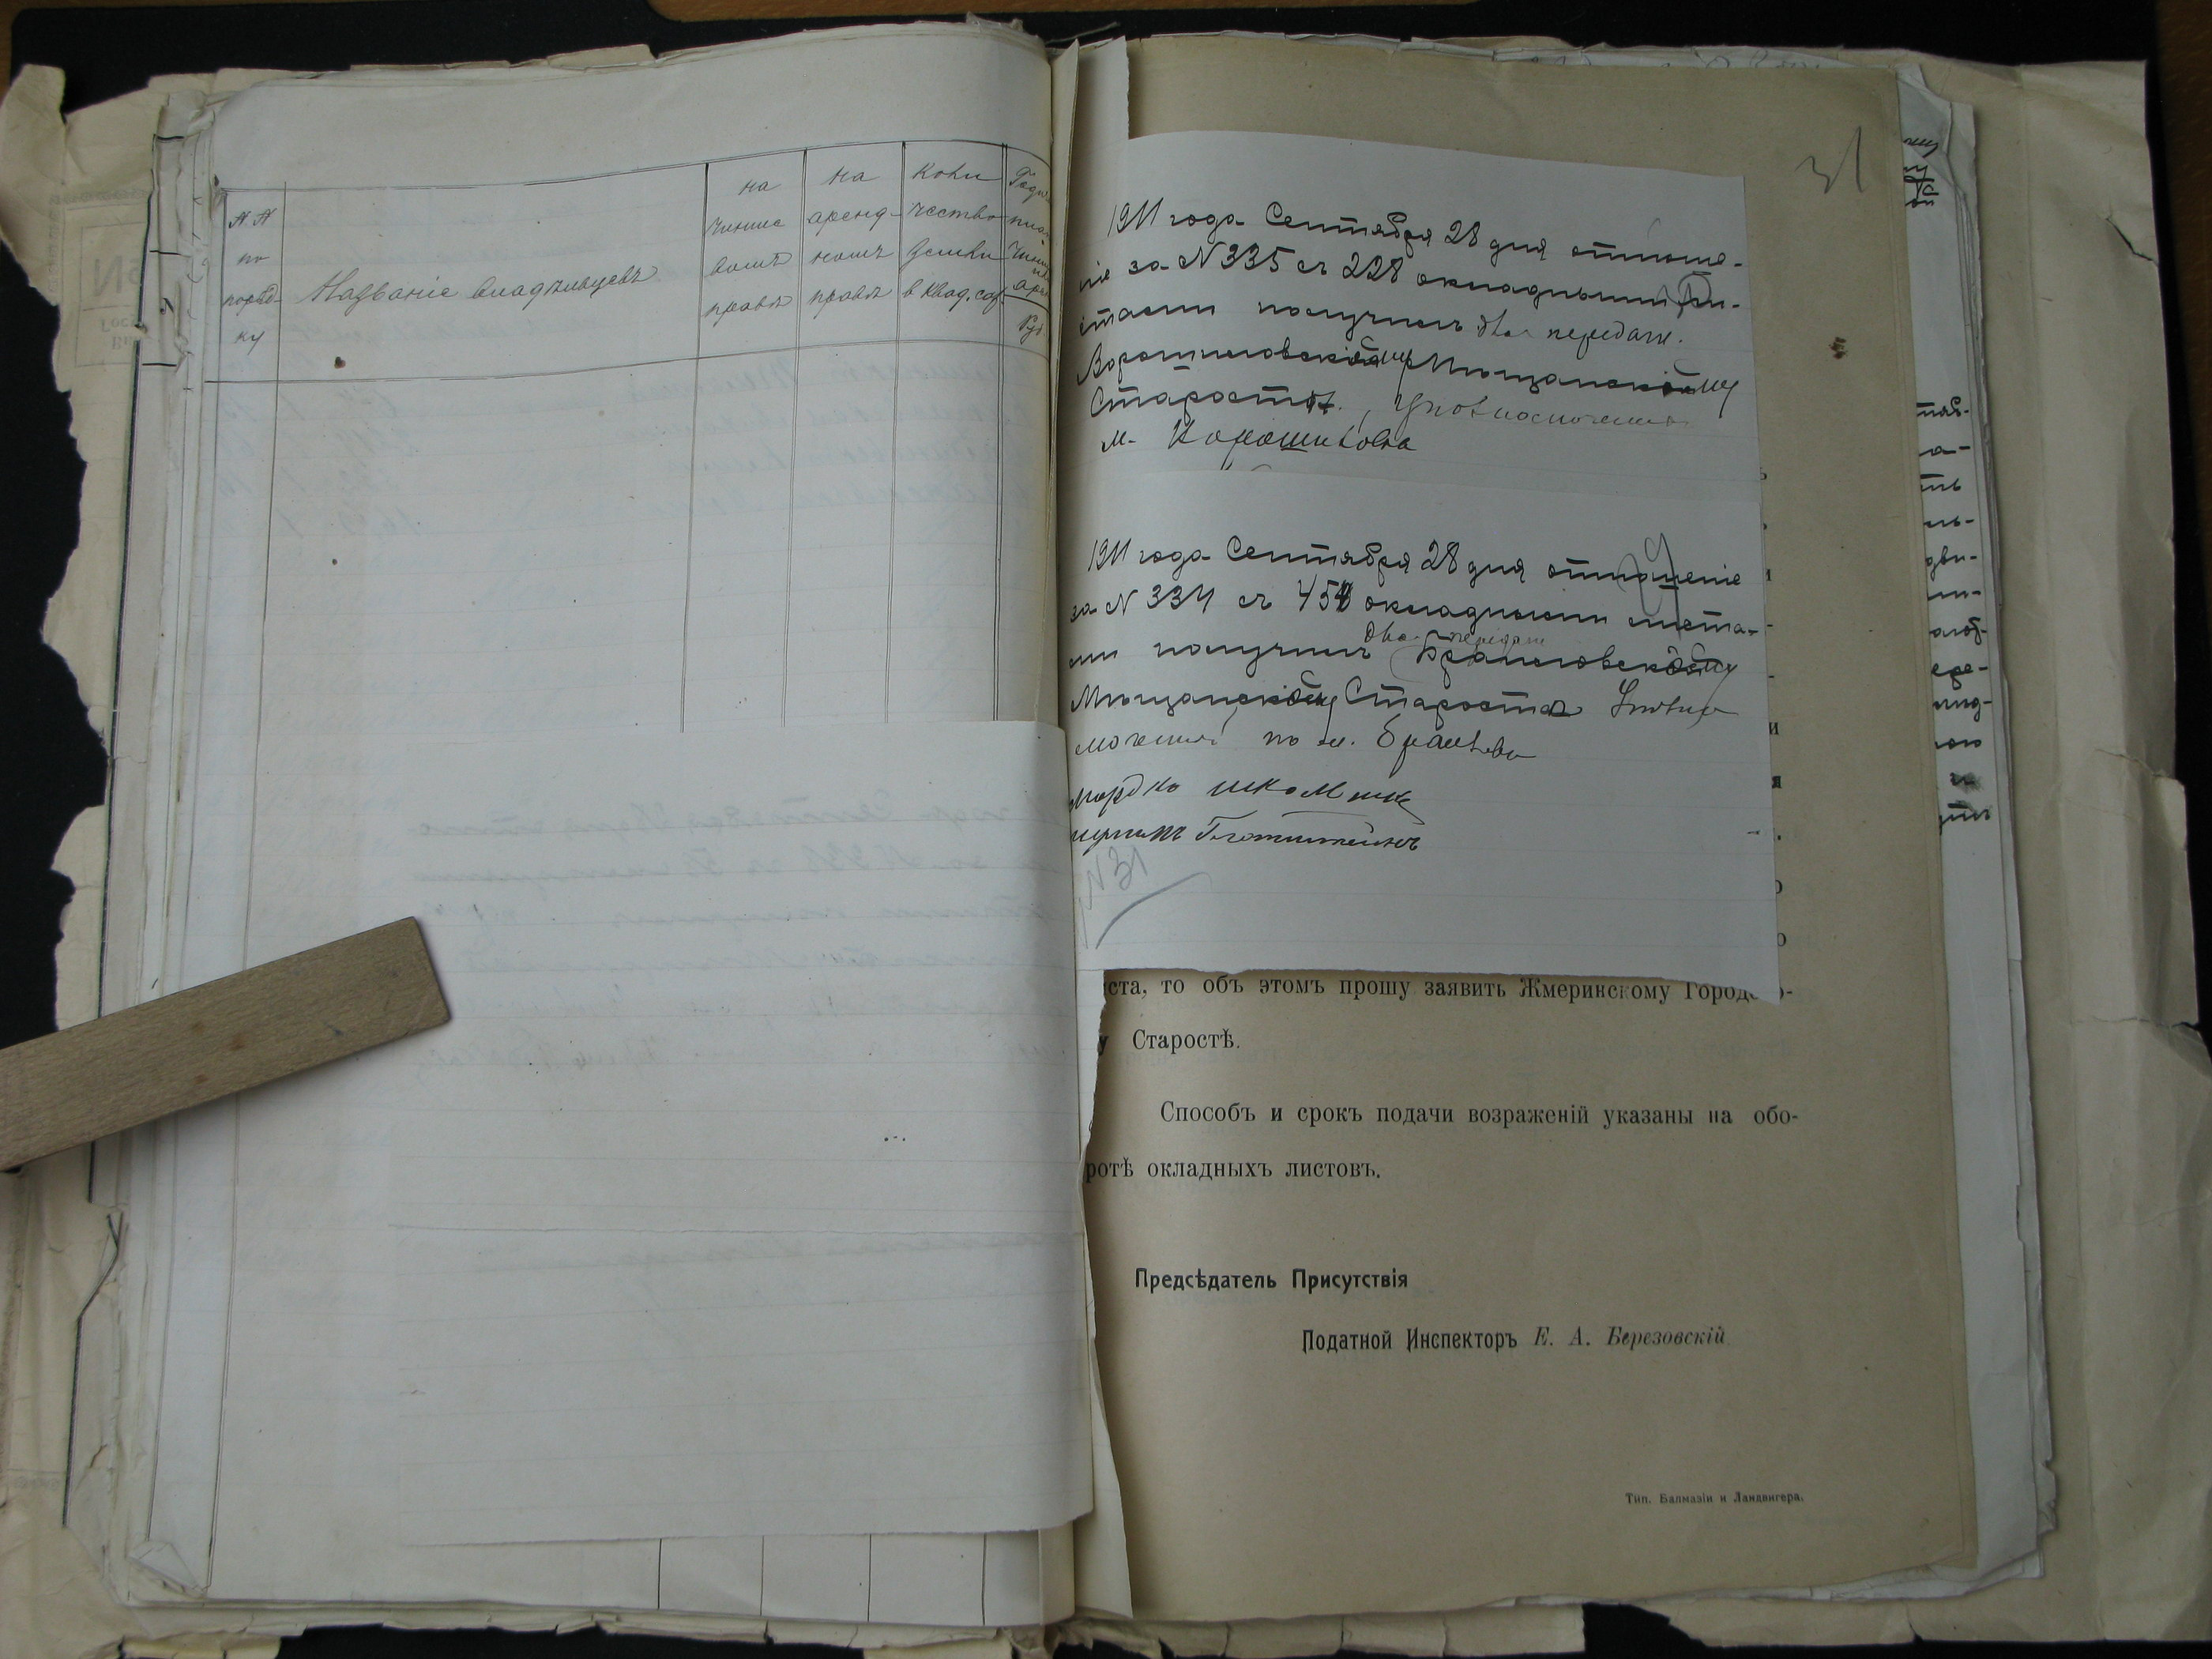 N. N по порядку
Названіе владѣльцевъ
на чиншевомъ правѣ
на арендномъ правѣ
Количество земли в квад. саж.
31
1911 года Сентября 28 дня отноше-
ніе за N 335 съ 228 окладными ли-
стами получилъ для передачи
Ворошиловскому Мѣщанскому
Старостѣ, Уполномоченный
м. Ворошиловка
1911 года Сентября 28 дня отношеніе
за N 334 съ 454 окладными листа-
ми получилъ для передачи Браиловскому
Мѣщанскому Старостѣ Уполно
моченный по м. Браилову
Мордко
N 31
ста, то объ этомъ прошу заявить Жмеринскому Городско-
му Старостѣ.
Способъ и срокъ подачи возраженій указаны на обо-
ротѣ окладныхъ листовъ.
Предсѣдатель Присутствія
Податной Инспекторъ Е. А. Березовскій
Тип. Балмазіи и Ландвигера.